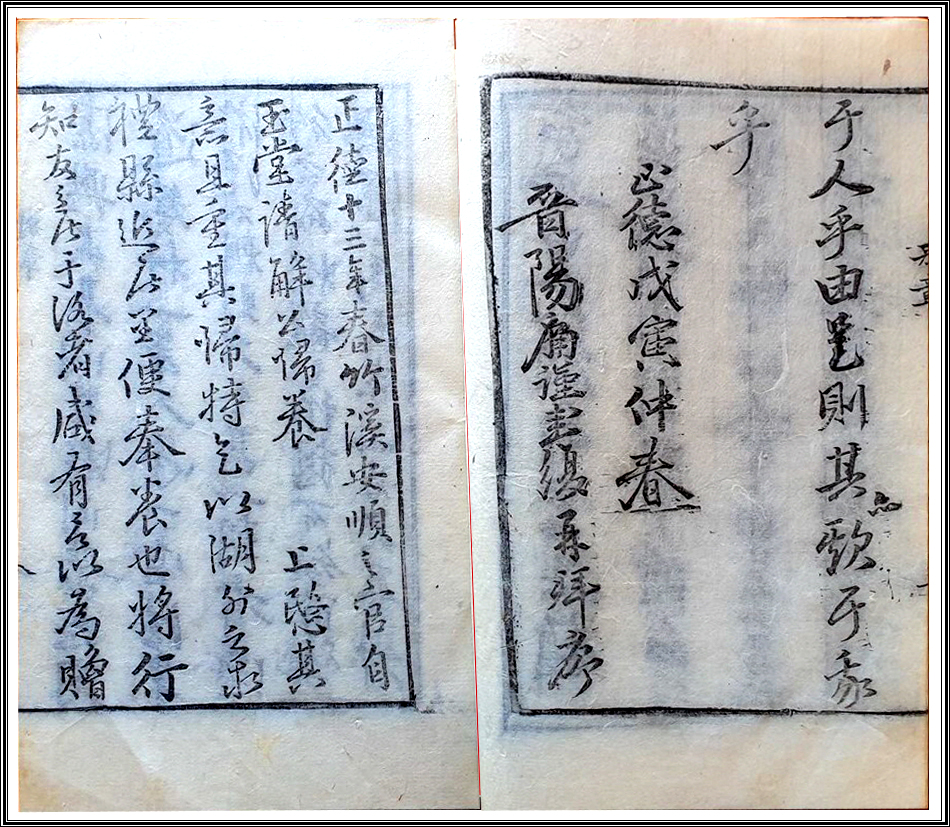 于人乎由是則其于家
乎
正德戊寅仲春
晉陽謹再拜序
正德十三年春竹溪安順之官自
玉堂請解公歸養　上愍其
意且重其歸特以湖外之求
禮縣近便奉養也將行
知友之在于洛者咸有言以為贐